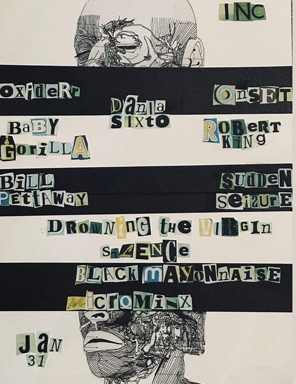 INC
OXiDERr ONSET
Dania
SIXTO
BaBY ROBERT
GorillA King
Bill SUDDEN
PETTAWAY SEiZURE
DROWNiNG the ViRgin
SiLENCe
BLACK MAYONNAISE
MICROMINX
JAN
31